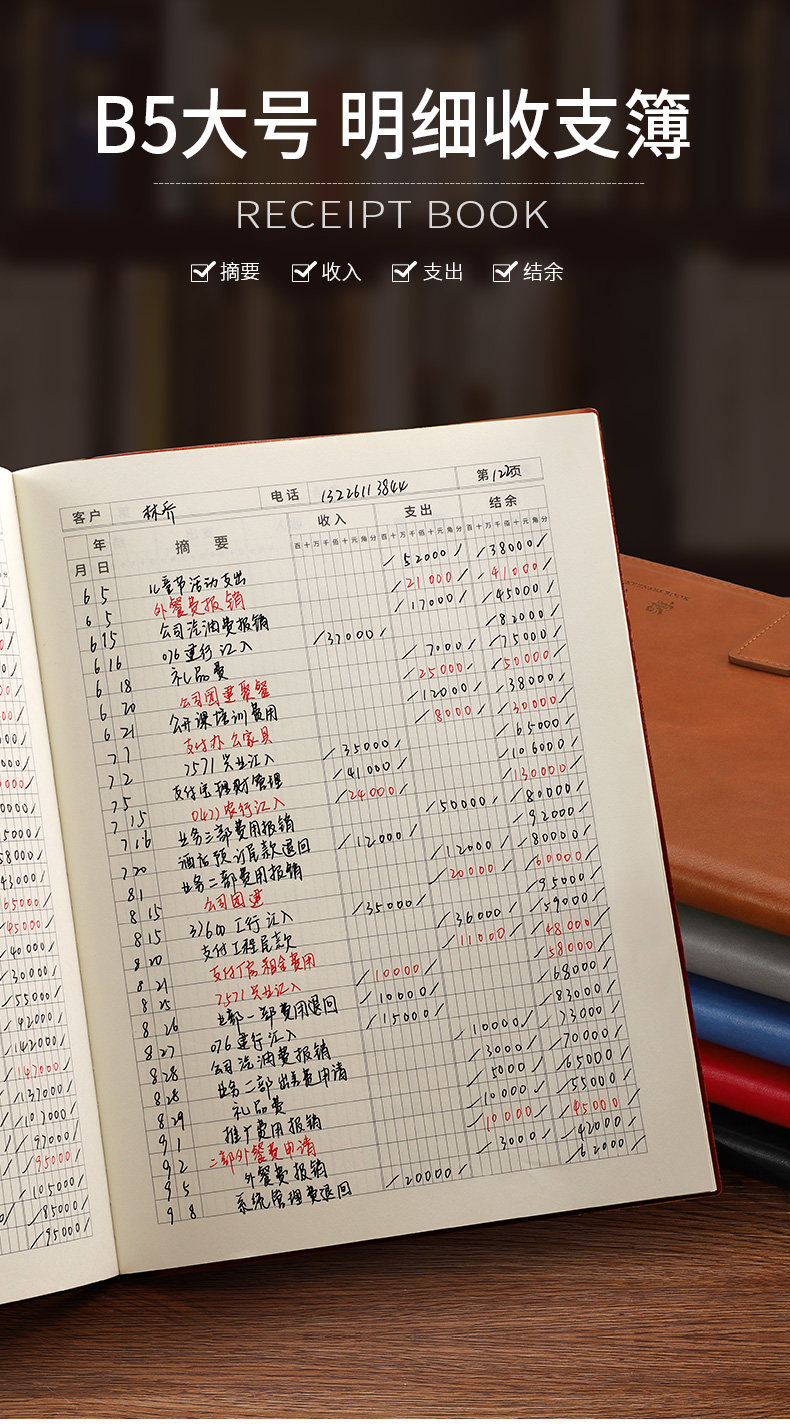 B5大号 明细收支簿
RECEIPT BOOK
摘要 收入 支出 结余
客户 林乔 电话 13226113844 第122页
年 月 日 摘要 收入 支出 结余
百十万千佰十元角分 百十万千佰十元角分 百十万千佰十元角分
6 5 儿童节活动支出 /52000/ /38000/
6 5 外餐费报销 /21000/ /41000/
6 15 公司汽油费报销 /17000/ /45000/
6 16 076建行汇入 /37000/ /82000/
6 18 礼品费 /7000/ /75000/
6 20 公司团建聚餐 /25000/ /50000/
6 21 公开课培训费用 /12000/ /38000/
7 1 支付办公家具 /8000/ /30000/
7 2 7571兴业汇入 /35000/ /65000/
7 5 支付宝理财管理 /41000/ /106000/
7 15 0477农行汇入 /24000/ /130000/
7 16 业务三部费用报销 /50000/ /80000/
7 20 酒店预订尾款退回 /12000/ /92000/
8 1 业务二部费用报销 /12000/ /80000/
8 15 公司团建 /20000/ /60000/
8 15 31600工行汇入 /35000/ /95000/
8 20 支付工程尾款 /36000/ /59000/
8 21 支付厂房租金费用 /11000/ /48000/
8 25 7571兴业汇入 /10000/ /58000/
8 26 业部一部费用退回 /10000/ /68000/
8 27 076建行汇入 /15000/ /83000/
8 28 公司汽油费报销 /10000/ /73000/
8 28 业务二部出差费申请 /3000/ /70000/
8 29 礼品费 /5000/ /65000/
9 1 推广费用报销 /10000/ /55000/
9 2 二部外餐费申请 /10000/ /45000/
9 5 外餐费报销 /3000/ /42000/
9 8 系统管理费退回 /20000/ /62000/